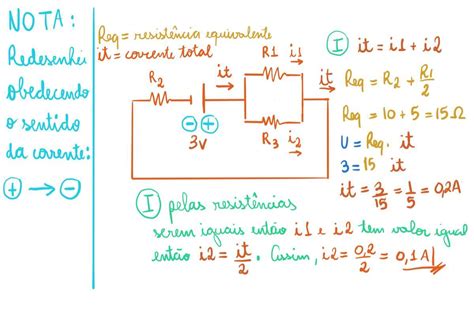 NOTA:
Redesenhei
obedecendo
o sentido
da corrente:
+ → −
Req = resistência equivalente
it = corrente total
R2
it
− +
3V
R1 i1
R3 i2
it
I it = i1 + i2
Req = R2 + R1/2
Req = 10 + 5 = 15Ω
U = Req. it
3 = 15 it
it = 3/15 = 1/5 = 0,2A
I pelas resistências
serem iguais então i1 e i2 tem valor igual
então i2 = it/2. Assim, i2 = 0,2/2 = 0,1A